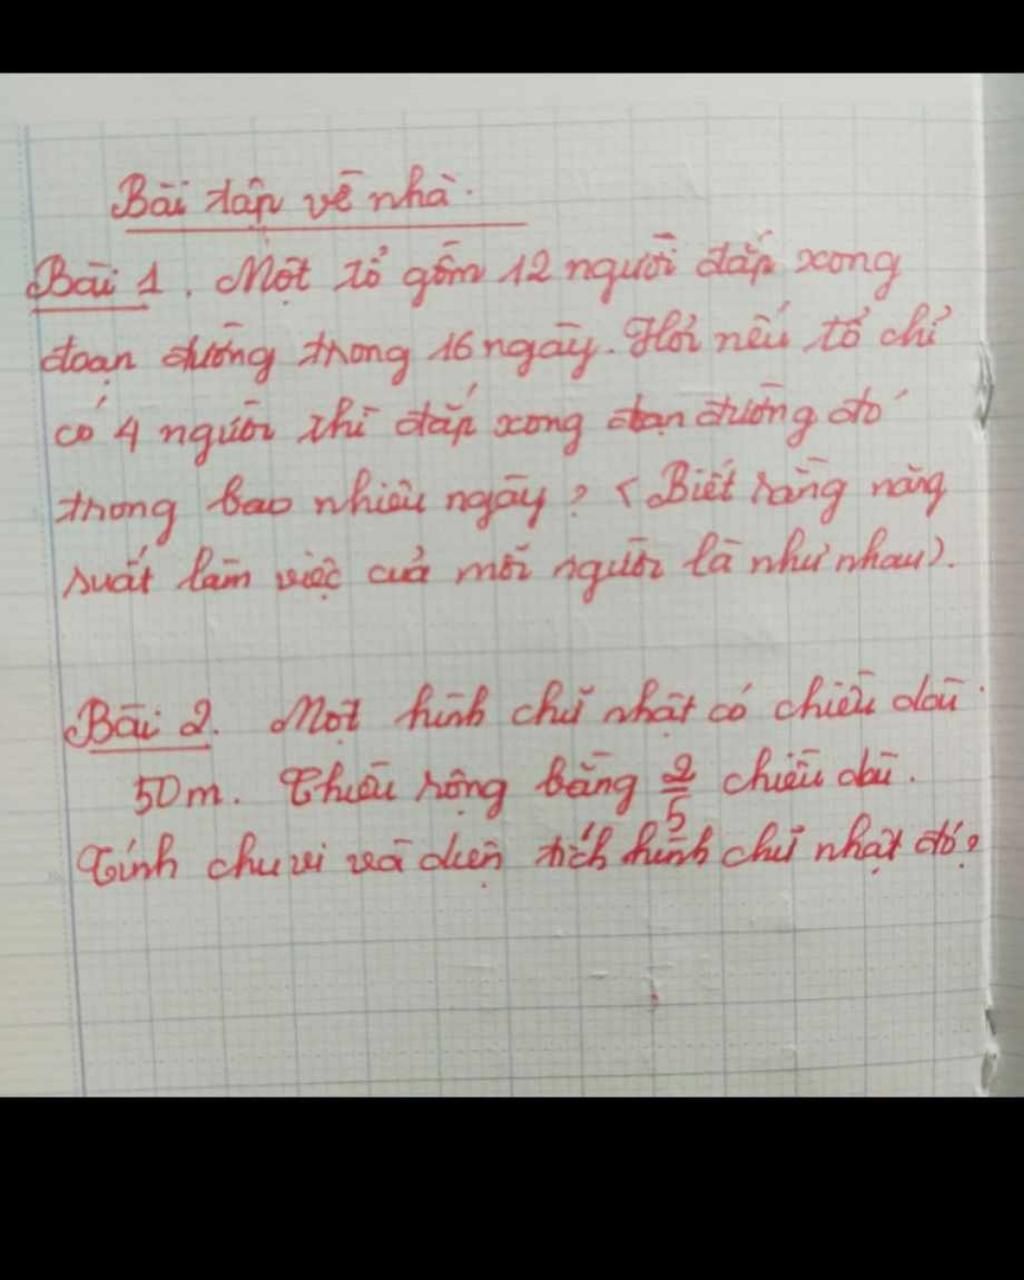 Bài tập về nhà.
Bài 1. Một tổ gồm 12 người đắp xong
đoạn đường trong 16 ngày. Hỏi nếu tổ chỉ
có 4 người thì đắp xong đoạn đường đó
trong bao nhiêu ngày? (Biết rằng năng
suất làm việc của mỗi người là như nhau).
Bài 2. Một hình chữ nhật có chiều dài
50m. Chiều rộng bằng 2/5 chiều dài.
Tính chu vi và diện tích hình chữ nhật đó?